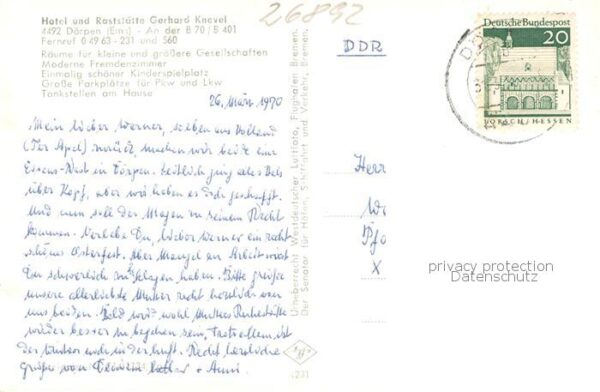 26892
Hotel und Raststätte Gerhard Knevel
4492 Dörpen (Ems) - An der B 70 / B 401
Fernruf 0 49 63 - 231 und 560
Räume für kleine und größere Gesellschaften
Moderne Fremdenzimmer
Einmalig schöner Kinderspielplatz
Große Parkplätze für Pkw und Lkw
Tankstellen am Hause
DDR
Deutsche Bundespost
20
LORSCH/HESSEN
26. März 1970
Mein lieber Werner, soeben aus Holland
(Ter Apel) zurück, machen wir beide eine
Essens-Rast in Dörpen. Zeitlich ging alles
über Kopf, aber wir haben es doch geschafft.
Und nun soll der Magen zu seinem Recht
kommen. Verlebe Du, lieber Werner ein recht
schönes Osterfest. Über Mangel an Arbeit wirst
Du schwerlich zu klagen haben. Bitte grüße
unsere allerliebste Mutter recht herzlich von
uns beiden. Bald wird wohl Mutters Ruhestätte
wieder besser zu begehen sein, trotz allem ist
der Winter noch in der Luft. Recht herzliche
Grüße von Deinem Lothar + Anni.
Urheberrecht Westdeutscher Luftfoto, Flughafen Bremen.
Der Senator für Häfen, Schiffahrt und Verkehr, Bremen.
231
Herr
X
privacy protection
Datenschutz